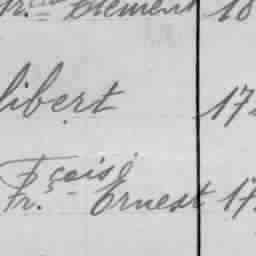 Fr. Clément 18
libert 17
Fçoise
Fr. Ernest 17